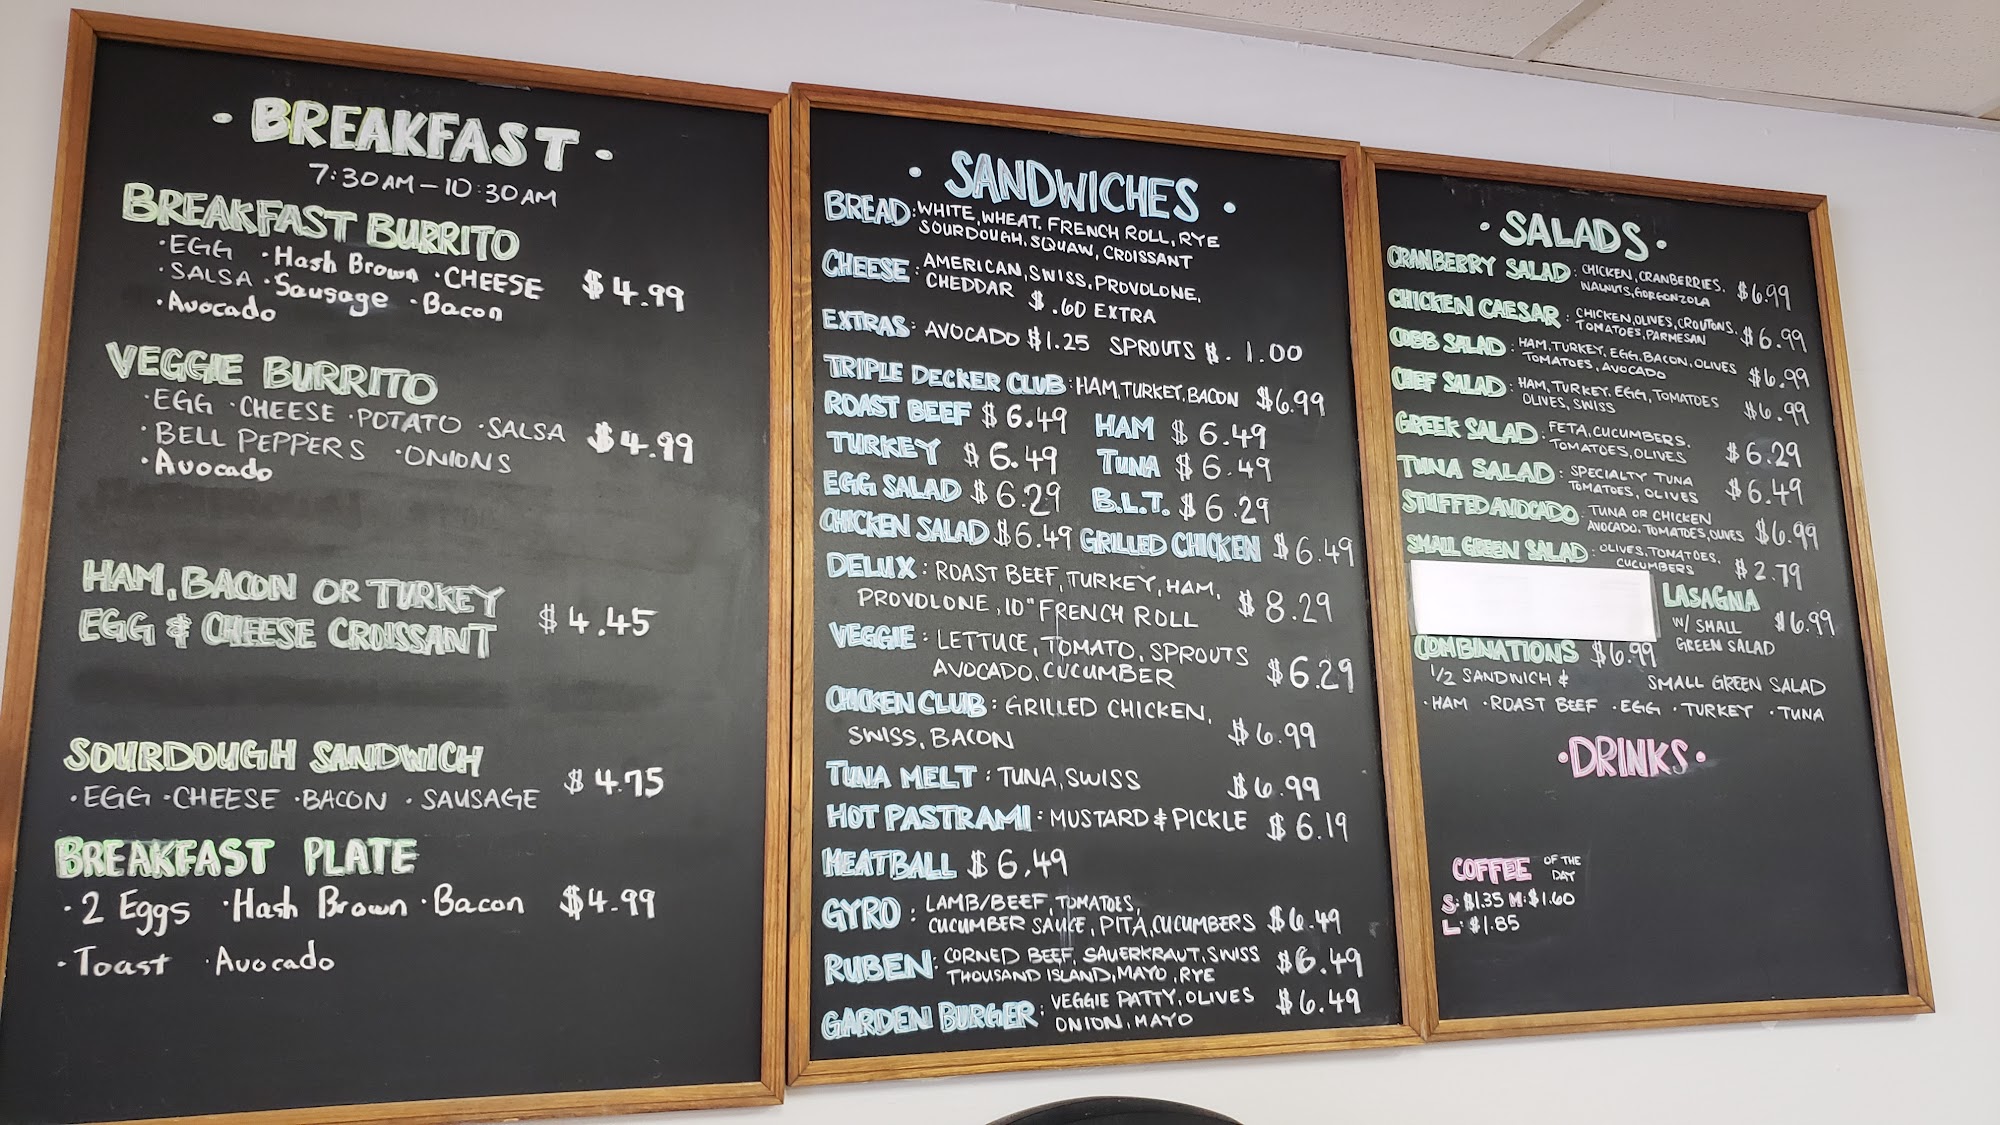 · BREAKFAST ·
7:30AM – 10:30AM
BREAKFAST BURRITO
· EGG · Hash Brown · CHEESE $4.99
· SALSA · Sausage · Bacon
· Avocado
VEGGIE BURRITO
· EGG · CHEESE · POTATO · SALSA $4.99
· BELL PEPPERS · ONIONS
· Avocado
HAM, BACON OR TURKEY
EGG & CHEESE CROISSANT $4.45
SOURDOUGH SANDWICH
· EGG · CHEESE · BACON · SAUSAGE $4.75
BREAKFAST PLATE
· 2 Eggs · Hash Brown · Bacon $4.99
· Toast · Avocado
· SANDWICHES ·
BREAD: WHITE, WHEAT, FRENCH ROLL, RYE
SOURDOUGH, SQUAW, CROISSANT
CHEESE: AMERICAN, SWISS, PROVOLONE,
CHEDDAR $.60 EXTRA
EXTRAS: AVOCADO $1.25 SPROUTS $. 1.00
TRIPLE DECKER CLUB: HAM, TURKEY, BACON $6.99
ROAST BEEF $6.49 HAM $6.49
TURKEY $6.49 TUNA $6.49
EGG SALAD $6.29 B.L.T. $6.29
CHICKEN SALAD $6.49 GRILLED CHICKEN $6.49
DELUX: ROAST BEEF, TURKEY, HAM,
PROVOLONE, 10" FRENCH ROLL $8.29
VEGGIE: LETTUCE, TOMATO, SPROUTS
AVOCADO, CUCUMBER $6.29
CHICKEN CLUB: GRILLED CHICKEN,
SWISS, BACON $6.99
TUNA MELT: TUNA, SWISS $6.99
HOT PASTRAMI: MUSTARD & PICKLE $6.19
MEATBALL $6.49
GYRO: LAMB/BEEF, TOMATOES,
CUCUMBER SAUCE, PITA, CUCUMBERS $6.49
RUBEN: CORNED BEEF, SAUERKRAUT, SWISS
THOUSAND ISLAND, MAYO, RYE $6.49
GARDEN BURGER: VEGGIE PATTY, OLIVES
ONION, MAYO $6.49
· SALADS ·
CRANBERRY SALAD: CHICKEN, CRANBERRIES,
WALNUTS, GORGONZOLA $6.99
CHICKEN CAESAR: CHICKEN, OLIVES, CROUTONS,
TOMATOES, PARMESAN $6.99
COBB SALAD: HAM, TURKEY, EGG, BACON, OLIVES
TOMATOES, AVOCADO $6.99
CHEF SALAD: HAM, TURKEY, EGG, TOMATOES
OLIVES, SWISS $6.99
GREEK SALAD: FETA, CUCUMBERS,
TOMATOES, OLIVES $6.29
TUNA SALAD: SPECIALTY TUNA
TOMATOES, OLIVES $6.49
STUFFED AVOCADO: TUNA OR CHICKEN
AVOCADO, TOMATOES, OLIVES $6.99
SMALL GREEN SALAD: OLIVES, TOMATOES,
CUCUMBERS $2.79
LASAGNA
W/ SMALL $6.99
GREEN SALAD
COMBINATIONS $6.99
1/2 SANDWICH & SMALL GREEN SALAD
· HAM · ROAST BEEF · EGG · TURKEY · TUNA
· DRINKS ·
COFFEE OF THE
DAY
S: $1.35 M: $1.60
L: $1.85